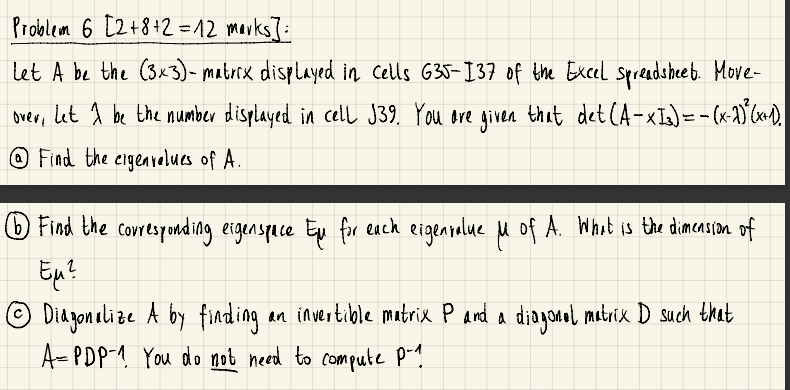 Problem 6 [2+8+2=12 marks]:
Let A be the (3×3)-matrix displayed in cells G35-I37 of the Excel spreadsheet. More-
over, let λ be the number displayed in cell J39. You are given that det(A-xI₃)=-(x-λ)²(x+1).
ⓐ Find the eigenvalues of A.
ⓑ Find the corresponding eigenspace Eμ for each eigenvalue μ of A. What is the dimension of
Eμ?
ⓒ Diagonalize A by finding an invertible matrix P and a diagonal matrix D such that
A=PDP⁻¹. You do not need to compute P⁻¹.